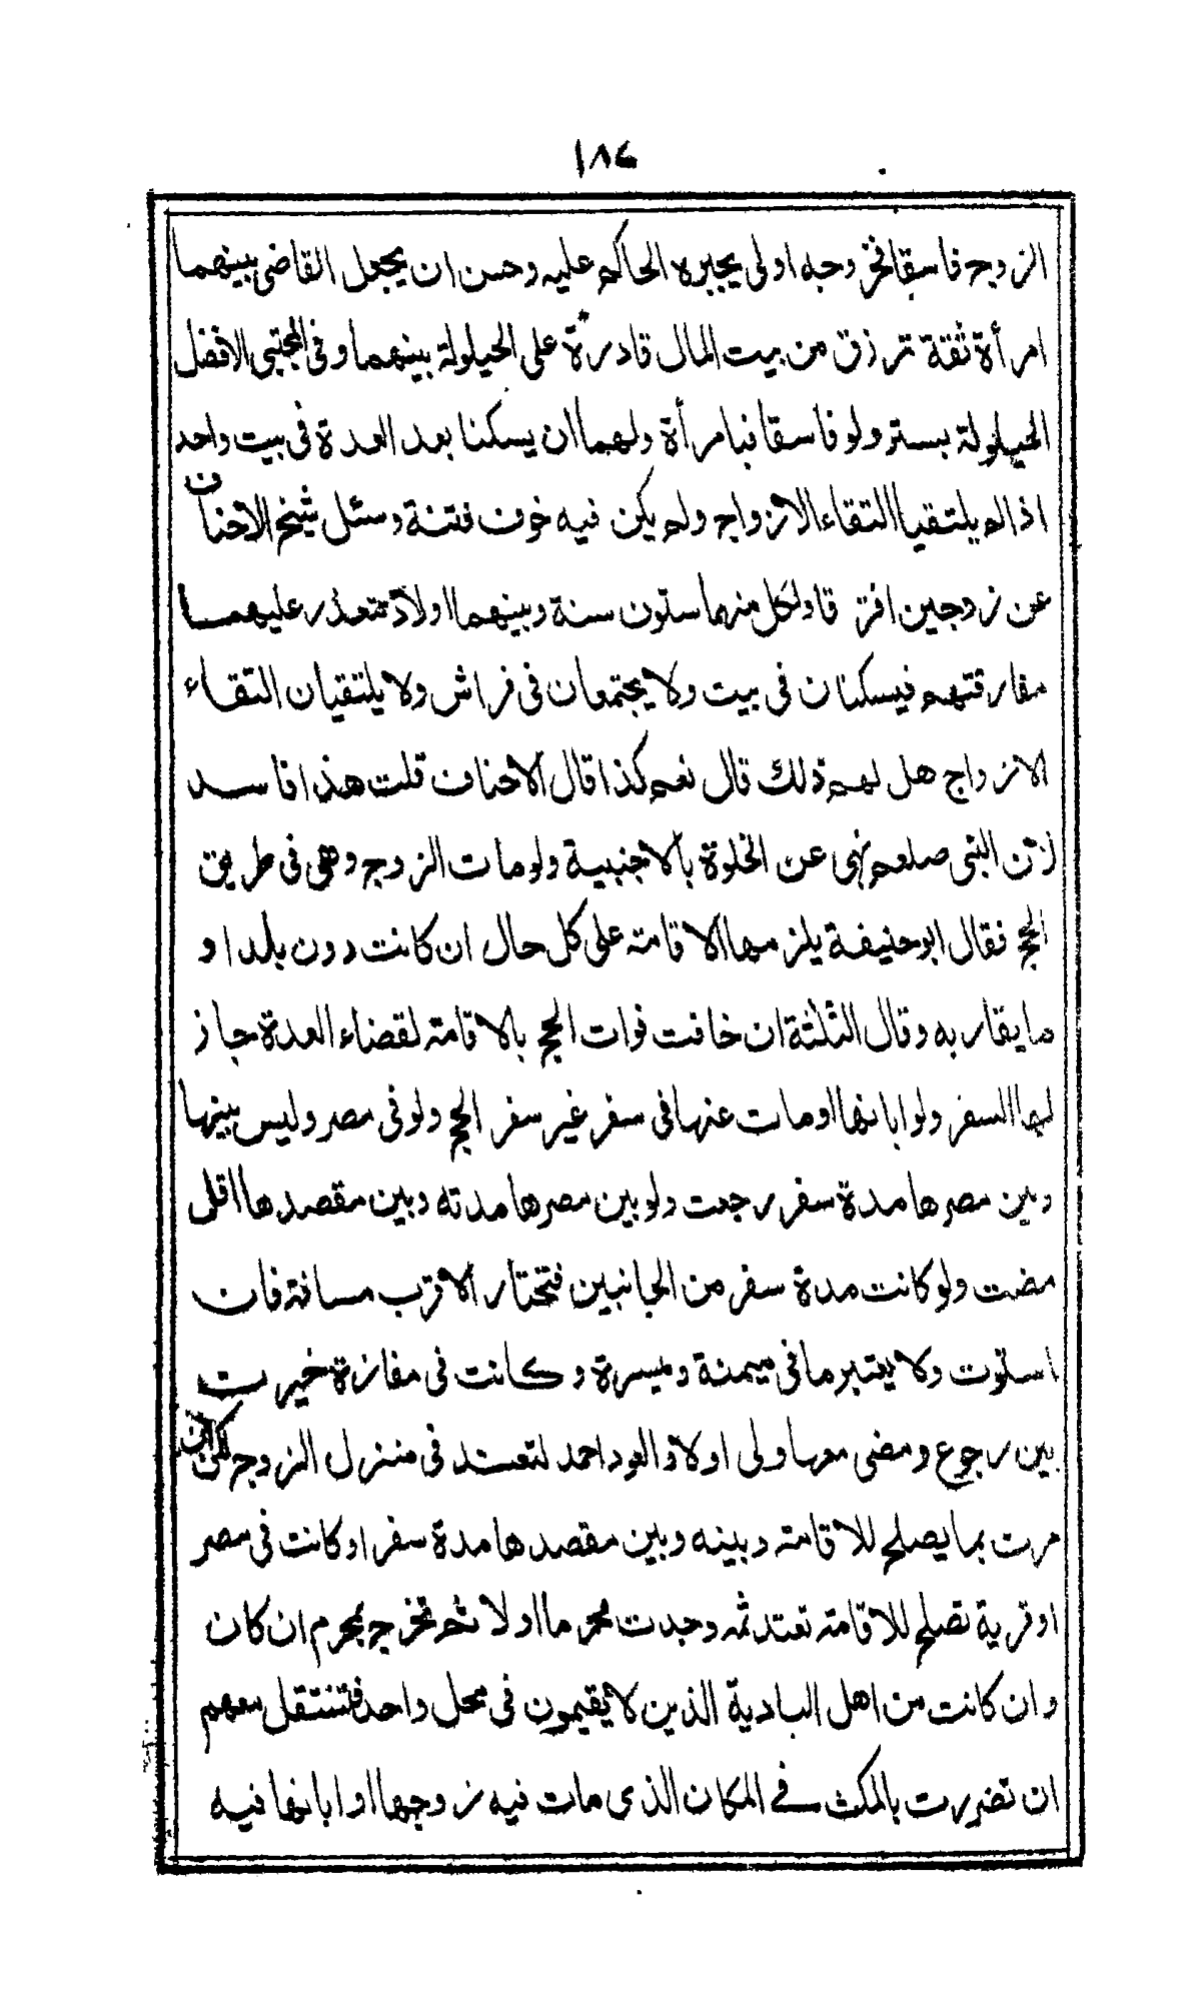 ١٨٦
الزوج فاسقا فخروجه اولى يجبره الحاكم عليه وحسن ان يجعل القاضى بينهما
امرأة ثقة ترزق من بيت المال قادرة على الحيلولة بينهما وفى المجتبى الافضل
الحيلولة بستر ولو فاسقا فبامرأة ولهما ان يسكنا بعد العدة فى بيت واحد
اذا لم يلتقيا التقاء الازواج ولم يكن فيه خوف فتنة وسئل شيخ الاحناف
عن زوجين افترقا ولكل منهما ستون سنة وبينهما اولاد تتعذر عليهما
مفارقتهم فيسكنان فى بيت ولا يجتمعان فى فراش ولا يلتقيان التقاء
الازواج هل لهم ذلك قال نعم كذا قال الاحناف قلت هذا فاسد
لان النبى صلعم نهى عن الخلوة بالاجنبية ولو مات الزوج وهى فى طريق
الحج فقال ابو حنيفة يلزمها الاقامة على كل حال ان كانت دون بلد او
ما يقاربه وقال الثلثة ان خافت فوات الحج بالاقامة لقضاء العدة جاز
لها السفر ولو ابانها او مات عنها فى سفر غير سفر الحج ولو فى مصر وليس بينها
وبين مصرها مدة سفر رجعت ولو بين مصرها مدته وبين مقصدها اقل
مضت ولو كانت مدة سفر من الجانبين فتختار الاقرب مسافة فان
استوت ولا يعتبر ما فى ميمنة وميسرة وكانت فى مفازة خيرت
بين رجوع ومضى معها ولى اولا والعود احمد لتعتد فى منزل الزوج لكن ان
مرت بما يصلح للاقامة وبينه وبين مقصدها مدة سفر او كانت فى مصر
او قرية تصلح للاقامة تعتد ثمه وجدت محرما او لا ثم تخرج بمحرم ان كان
وان كانت من اهل البادية الذين لا يقيمون فى محل واحد فتنتقل معهم
ان تضررت بالمكث فى المكان الذى مات فيه زوجها او ابانها فيه